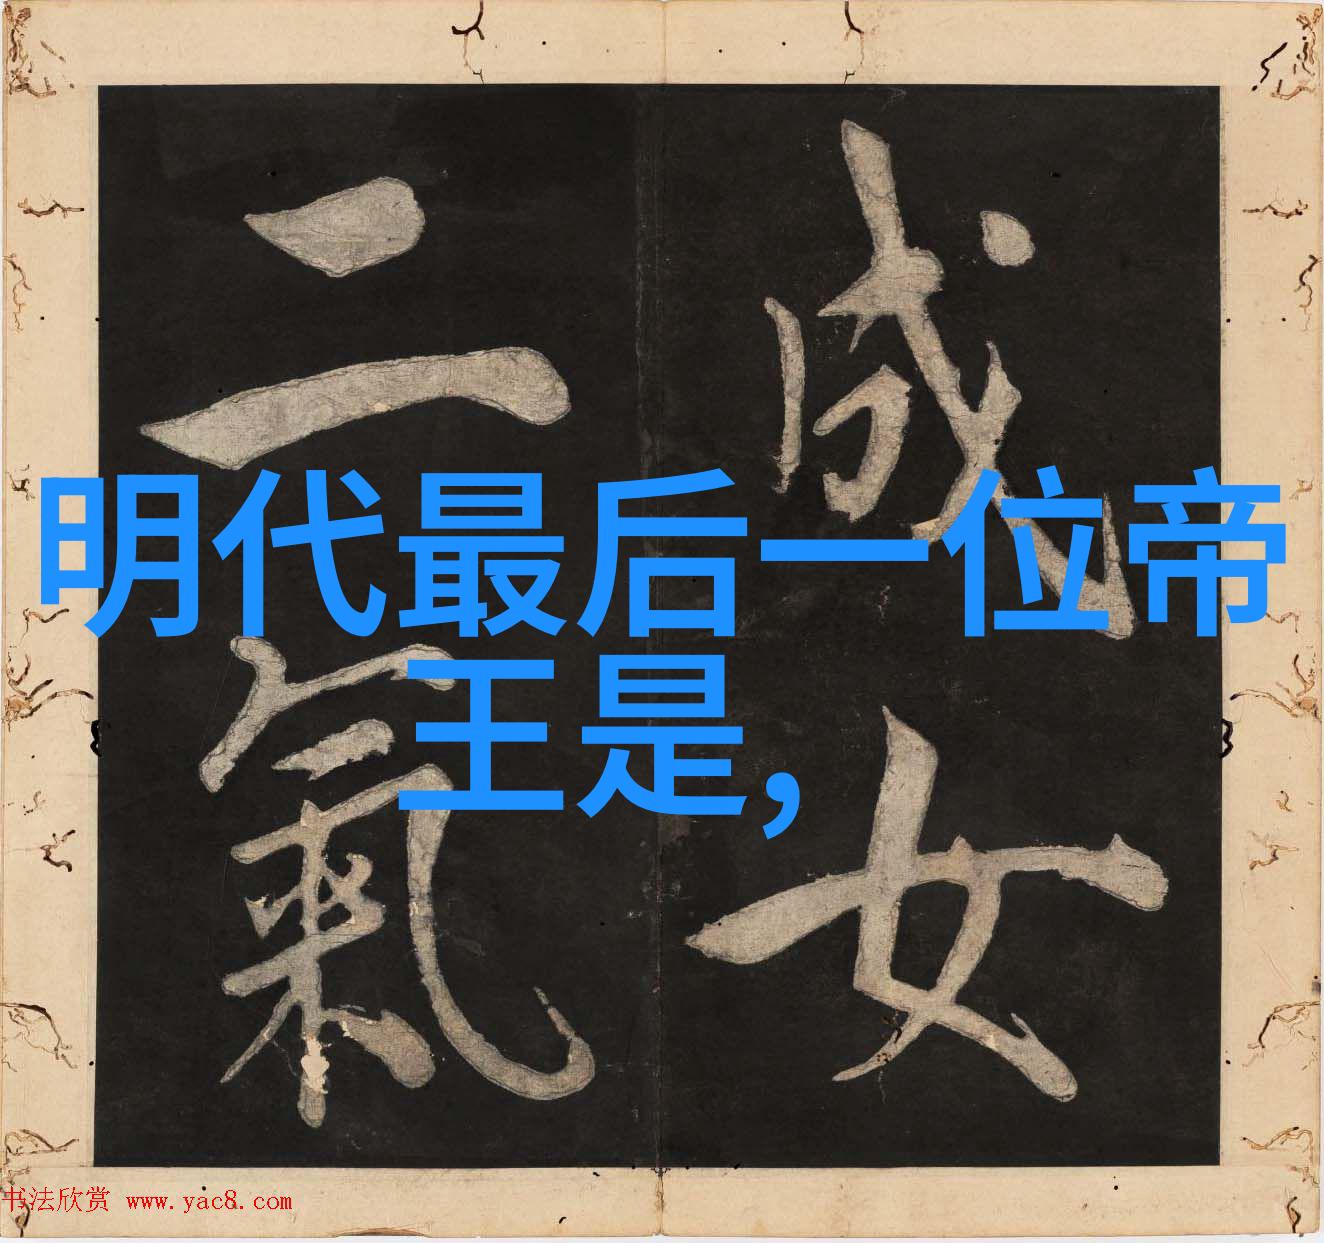 成女
二氣
明代最后一位帝
王是,
书法欣赏 www.yac8.com